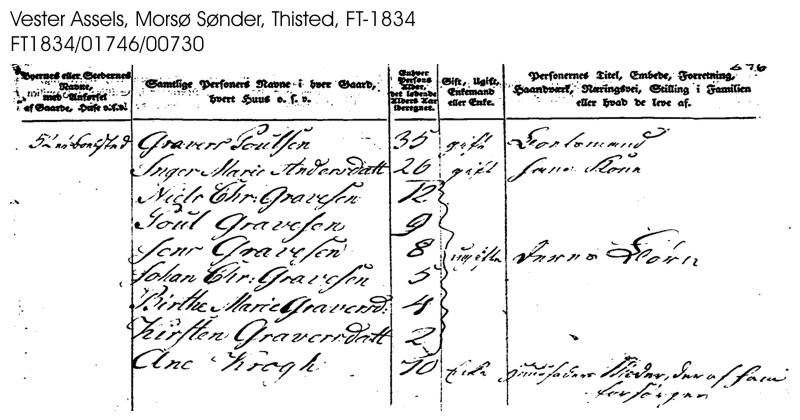 Vester Assels, Morsø Sønder, Thisted, FT-1834
FT1834/01746/00730
Byernes eller Stedernes Navne, med Anførsel af Gaarde, Huse o.s.v.
Samtlige Personers Navne i hver Gaard, hvert Huus o. s. v.
Enhver Persons Alder, det løbende Alders Aar iberegnet.
Gift, Ugift, Enkemand eller Enke.
Personernes Titel, Embede, Forretning, Haandværk, Næringsvei, Stilling i Familien eller hvad de leve af.
Gravers Poulsen 35 gift
Inger Marie Andersdatt 26 gift hans Kone
Niels Chr: Gravesen 12
Poul Gravesen 9
Jens Gravesen 8 ugifte Deres Børn
Johan Chr: Gravesen 5
Birthe Marie Graversd: 4
Kirsten Graversdatt 2
Ane Krogh 70 Enke Moder, der af ham
forsørges